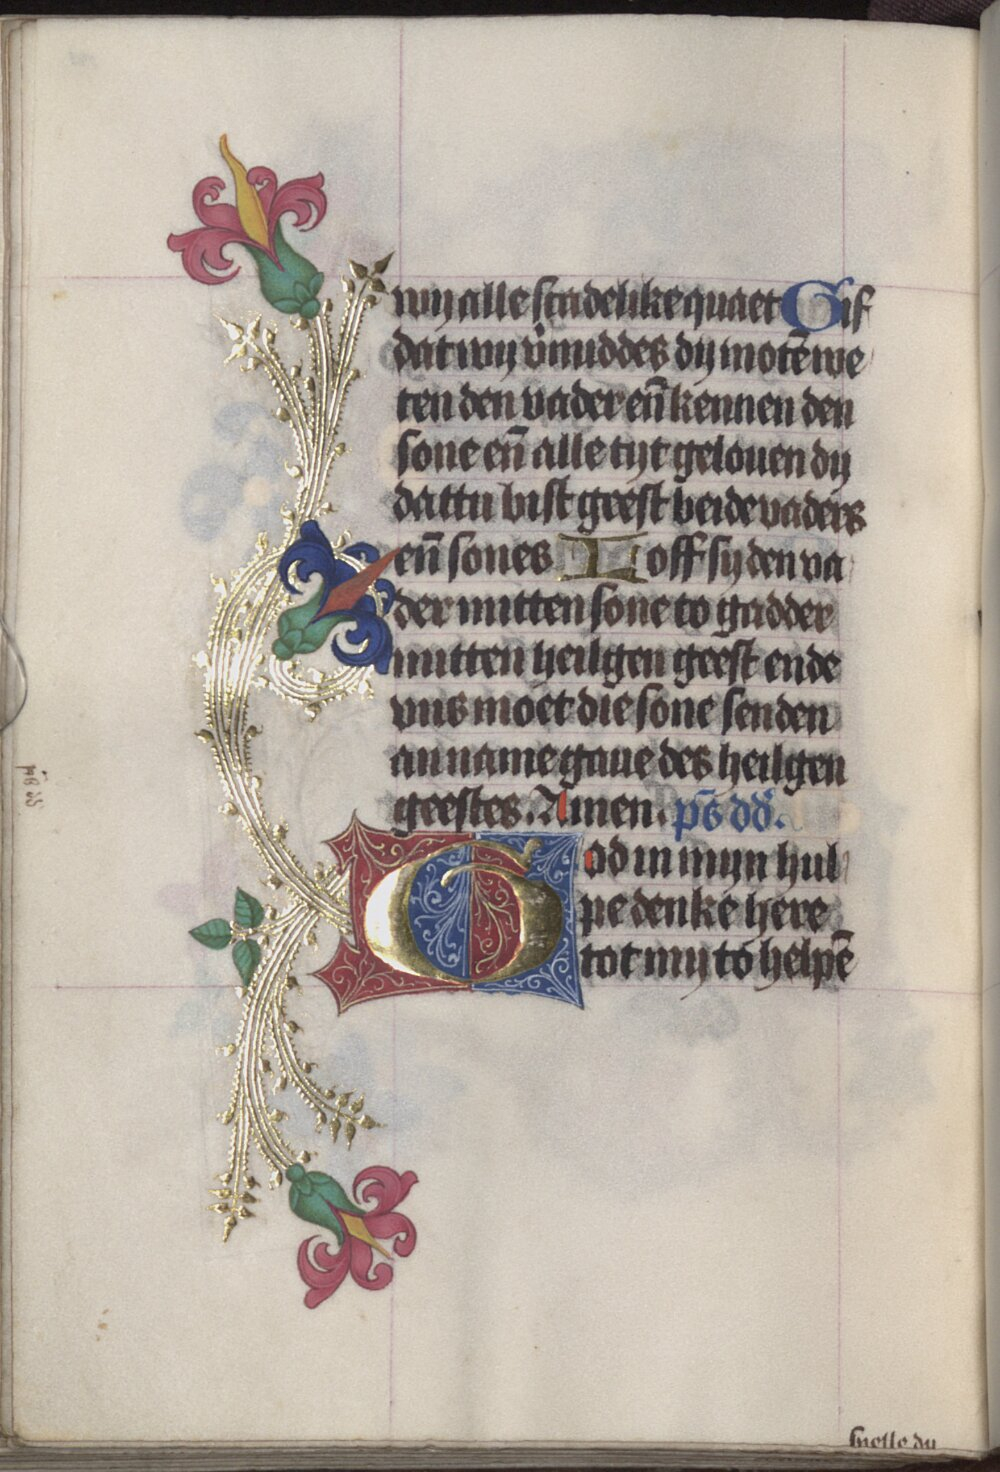 wy alle scadelike quaet Gif
dat wy v̾middes dy motē we
ten den vader en̄ kennen den
sone en̄ alle tyt gelouen dy
dattu bist geest beide vaders
en̄ sones Loff sy den va
der mitten sone to gadder
mitten heiligen geest ende
vns moet die sone senden
an name gaue des heilgen
geestes. Amen. ps̄ dd̄.
God in myn hul
pe denke here
tot my to helpē
snelle dy